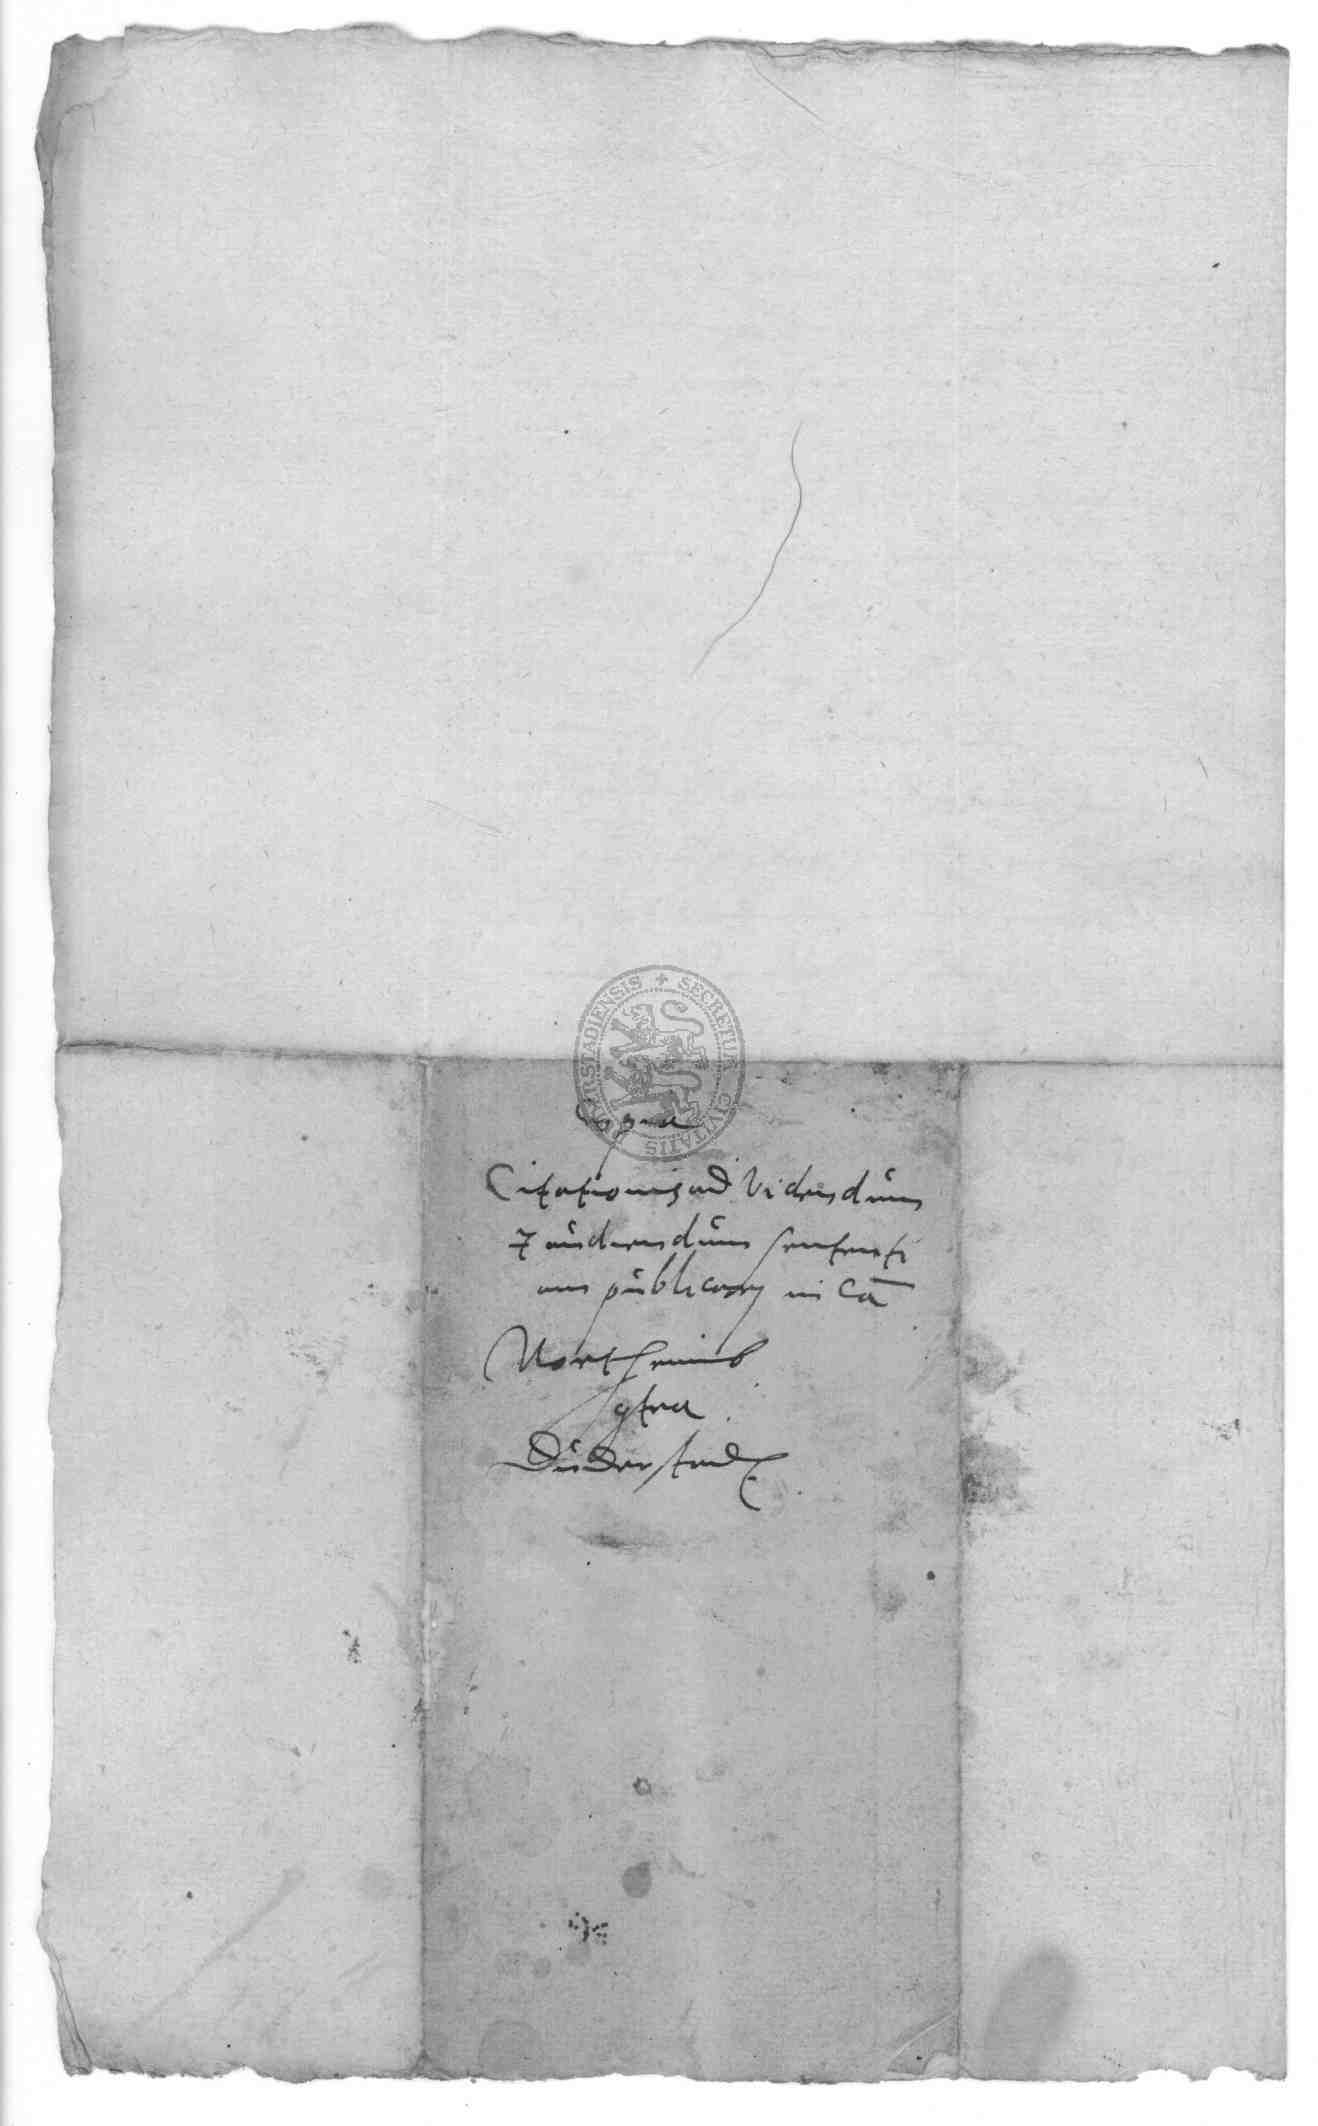 SECRETUM CIVITATIS DUDERSTADIENSIS
Copia
Citationis ad videndum
⁊ audiendum sententi
am publicarj in cā
Northeimb
gtra
Duderstadt